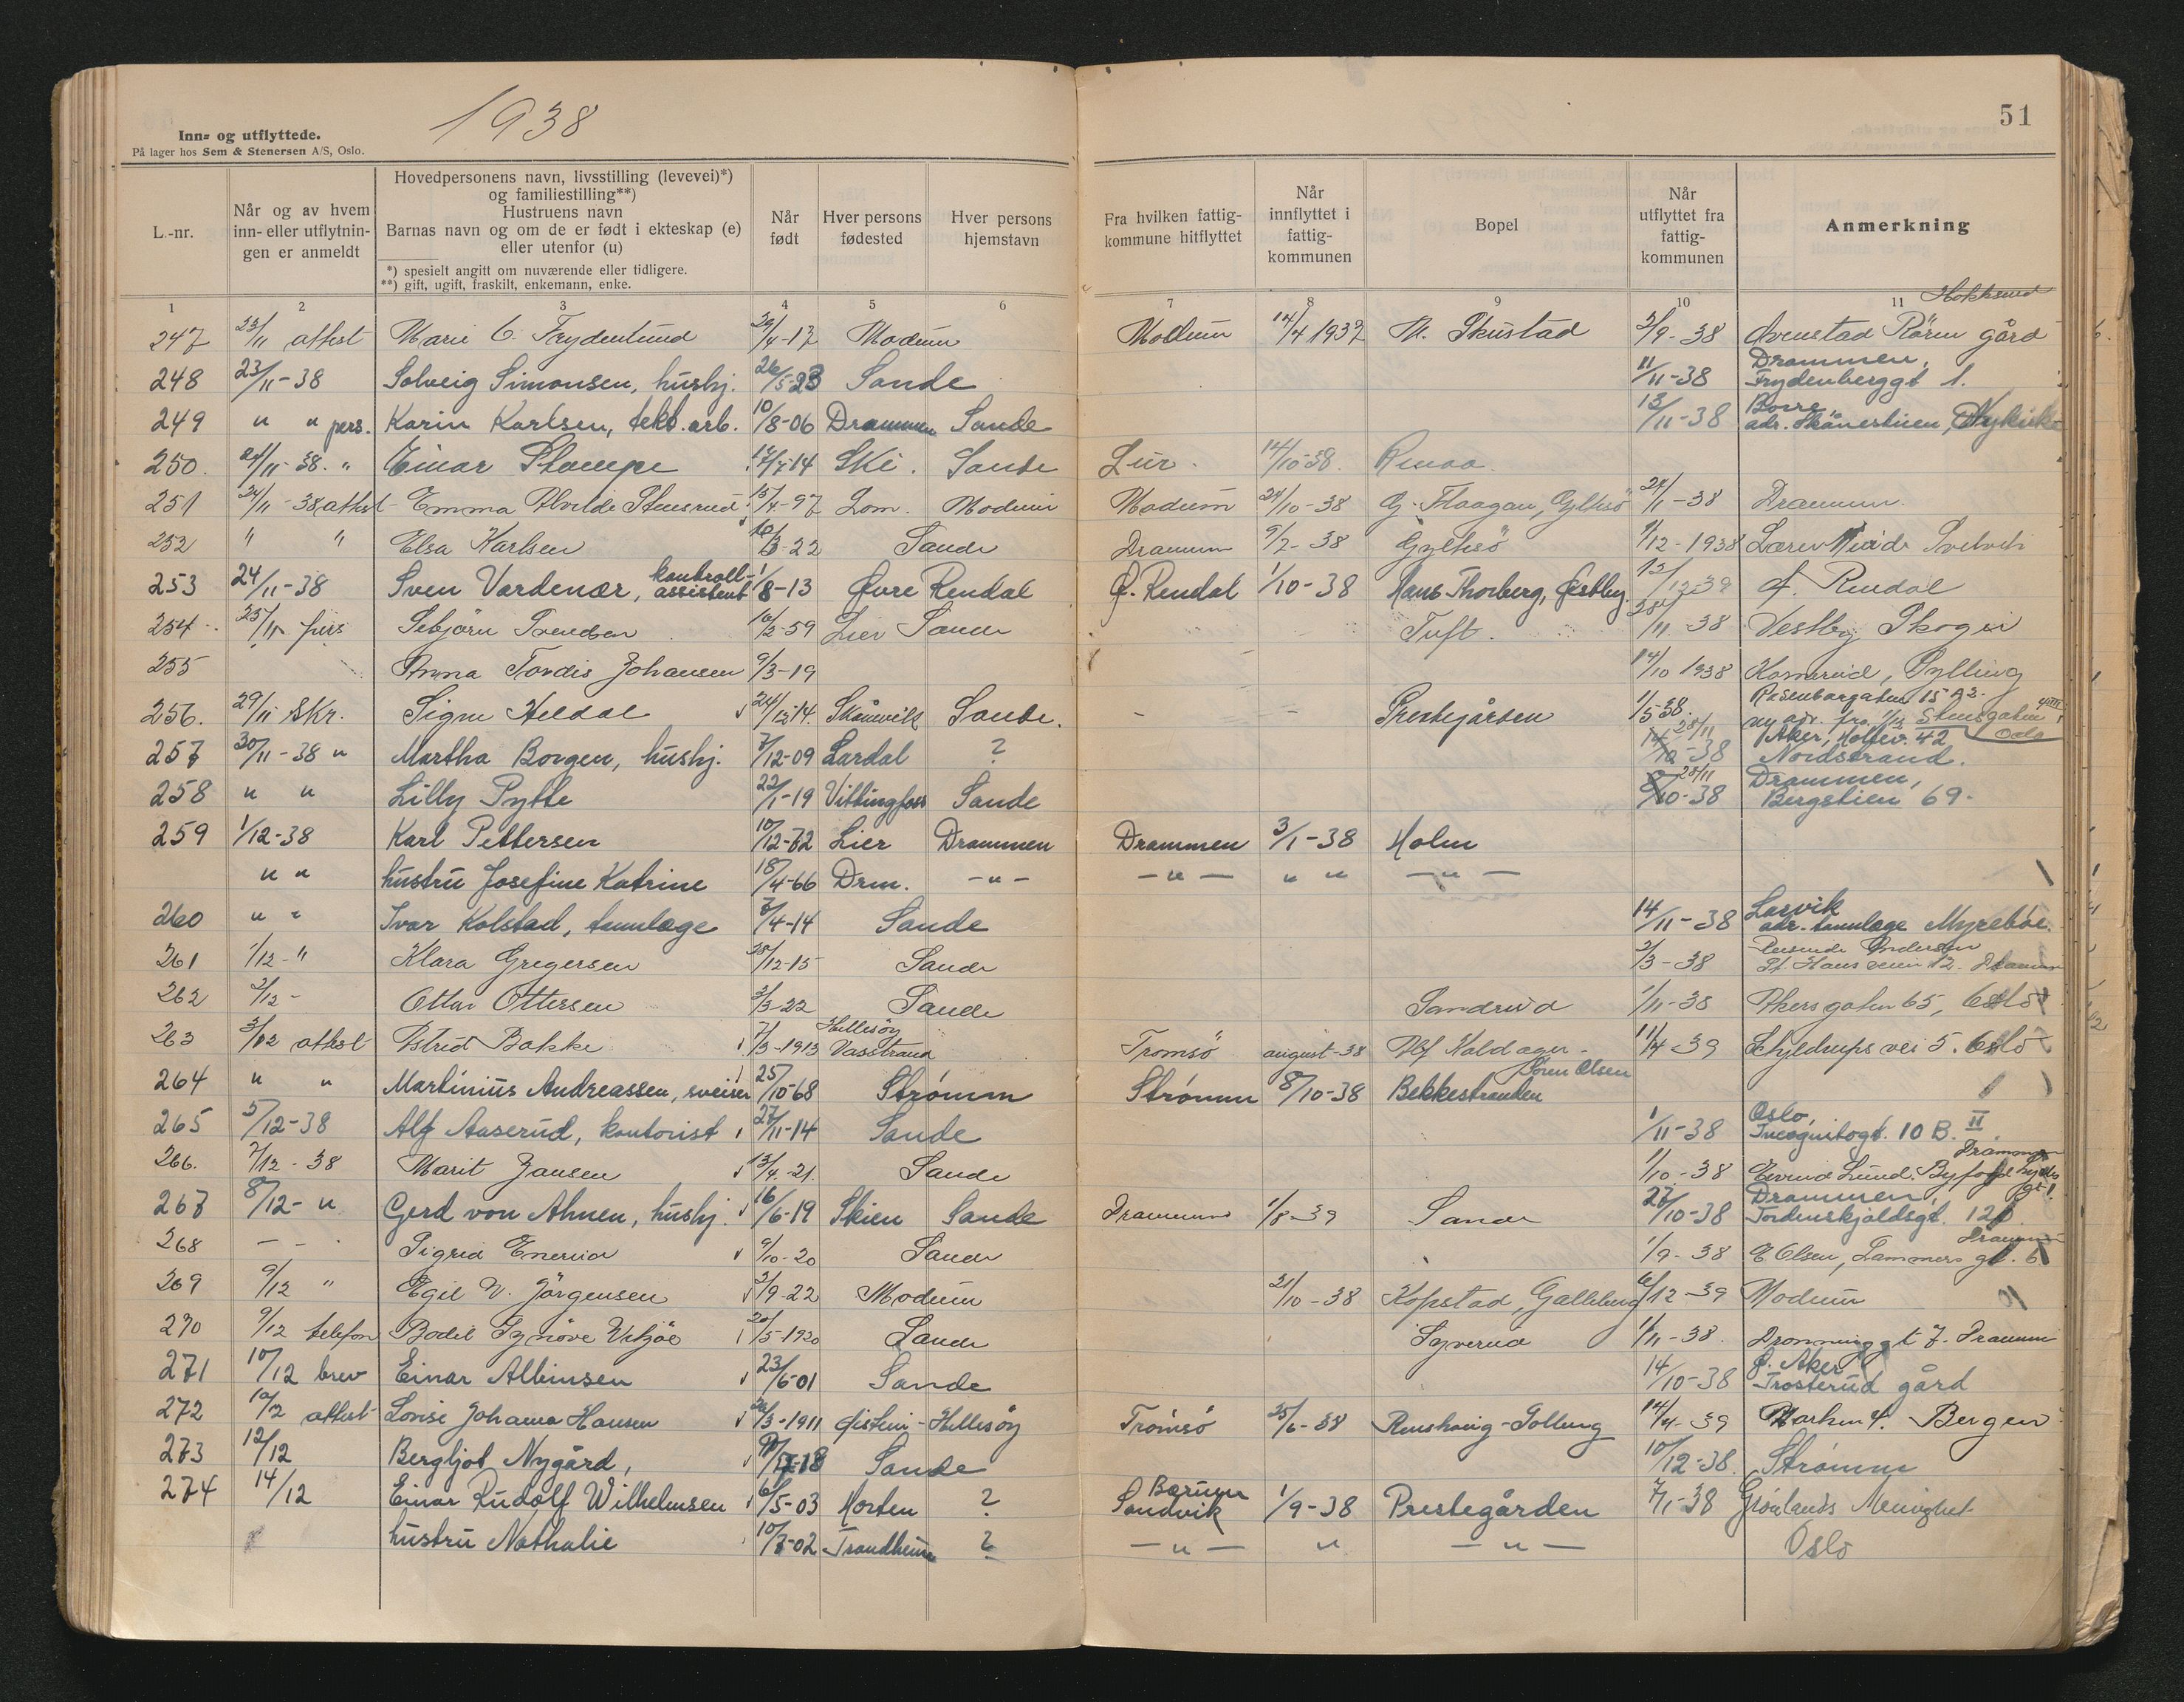 1938
51
Inn- og utflyttede.
På lager hos Sem & Stenersen A/S, Oslo.
L.-nr. | Når og av hvem inn- eller utflytningen er anmeldt | Hovedpersonens navn, livsstilling (levevei)*) og familiestilling**) Hustruens navn Barnas navn og om de er født i ekteskap (e) eller utenfor (u) *) spesielt angitt om nuværende eller tidligere. **) gift, ugift, fraskilt, enkemann, enke. | Når født | Hver persons fødested | Hver persons hjemstavn | Fra hvilken fattigkommune hitflyttet | Når innflyttet i fattigkommunen | Bopel | Når utflyttet fra fattigkommunen | Anmerkning
1 2 3 4 5 6 7 8 9 10 11
Hokksund
247 23/11 attest Marie C. Frydenlund 29/4-17 Modum Modum 14/4 1937 N. Skustad 2/9-38 gård
248 23/11-38 Solveig Simonsen, hushj. 26/5-23 Sande 11/11-38 Drammen, Frydenberggt 1.
249 " " pers. Karin Karlsen, tekt.arb. 10/8-06 Drammen Sande 13/11-38 Borre, adr. Skånestuen, Nykirke
250. 24/11-38. " Einar Stampe 17/7-14 Ski. Sande Lier. 14/10-38.
251 24/11-38 attest Emma Alvilde Stensrud 15/4-97 Lom. Modum Modum 24/10-38 G. Haagan, Gylhsö 24/11-38 Drammen.
252 " " Elsa Karlsen 16/3-22 Sande Drammen 9/2-38 Gylhsö 1/12-1938 Svelvik
253 24/11-38 Sven Vardenær, kontroll-assistent 1/8-13 Øvre Rendal Ø. Rendal 1/10-38 Hans Thorberg, Østby. 13/12-39 Ø. Rendal
254 25/11 pers Sebjörn Svendsen 16/2-59 Lier Sande Tuft. 25/11-38 Vestby Skoger
255 Anna Tordis Johansen 9/3-19 14/10 1938 Komnerud, Sylling
256. 29/11 Skr. Signe Heldal 24/12-14. Skånevik Sande. Prestegården 1/5 38. Rosenborgaten 15 A 3. ny adr. fra 1/12 Stensgaten Oslo
257 30/11-38 " Martha Borgen, hushj. 7/12-09 Lardal ? 28/11-38 Aker, Holtev. 42 Nordstrand.
258 " " Lilly Pytte 22/1-19 Vittingfoss Sande 28/11-38 Drammen, Bergstien 69.
259 1/12-38 Karl Pettersen 10/12-72 Lier Drammen Drammen 3/1-38 Holm
" " hustru Josefine Katrine 18/4-66 Drm. -"- -"- " " -"-
260 " " Ivar Kolstad, tannlæge 7/4-14 Sande 14/11-38 Larvik adr. tannlæge Myrebøe.
261 1/12-" Klara Gregersen 28/12-15 Sande 3/3-38 Reisende Andersen St. Hans veien 12. Drammen
262 2/12- Ottar Ottersen 3/3-22 Sande Sandrud 1/11-38 Akersgaten 65, Oslo
263 3/12 attest Astrid Bakke 7/3-1913 Hellesöy Vasstrand Tromsö august-38 Alf Kaldager. 11/4-39 Schyldrups vei 5. Oslo
264 " " Martinius Andreassen, sveiser 25/10-68 Strømm Strømm 8/10-38 Bekkestranden Sören Olsen
265 5/12-38 Alf Aaserud, kontorist 27/11-14 Sande 1/11-38 Oslo, Incognitogt. 10 B. II.
266. 7/12-38 Marit Jansen 13/4-21. Sande 1/10-38 Lund. Drammen
267 8/12-" Gerd von Ahnen, hushj. 16/6-19 Skien Sande Drammen 1/8-39 Sande 27/10-38 Drammen, Tordenskjoldsgt. 120.
268 - - Sigrid Enerud 9/10-20 Sande 1/9-38 E Olsen, Lammers gt. 6 Drammen
269 9/12 " Egil W. Jörgensen 3/9-22 Modum 21/10-38 Kopstad, Galleberg 6/12-39 Modum
270 9/12 telefon Bodil Synöve Vitjöe 20/5-1920 Sande Syverud 1/11-38. Dronninggt 7. Drammen
271 10/12 brev Einar Albinsen 23/6-01 Sande 14/10-38 Ø. Aker Trosterud gård
272 10/12 attest Lovise Johanna Hansen 26/3-1911 Hellesöy Tromsö 25/6-38 14/4-39 Marken 4. Bergen
273 12/12 Bergljot Nygård, 18 Sande 10/12-38. Strømm
274 14/12 Einar Rudolf Wilhelmsen 6/5-03 Horten ? Ø. Bærum Sandvik 1/9-38 Prestegården 7/1-38 Grønlands Menighet
hustru Nathalie 10/7-02 Trondheim ? -"- " -"- Oslo